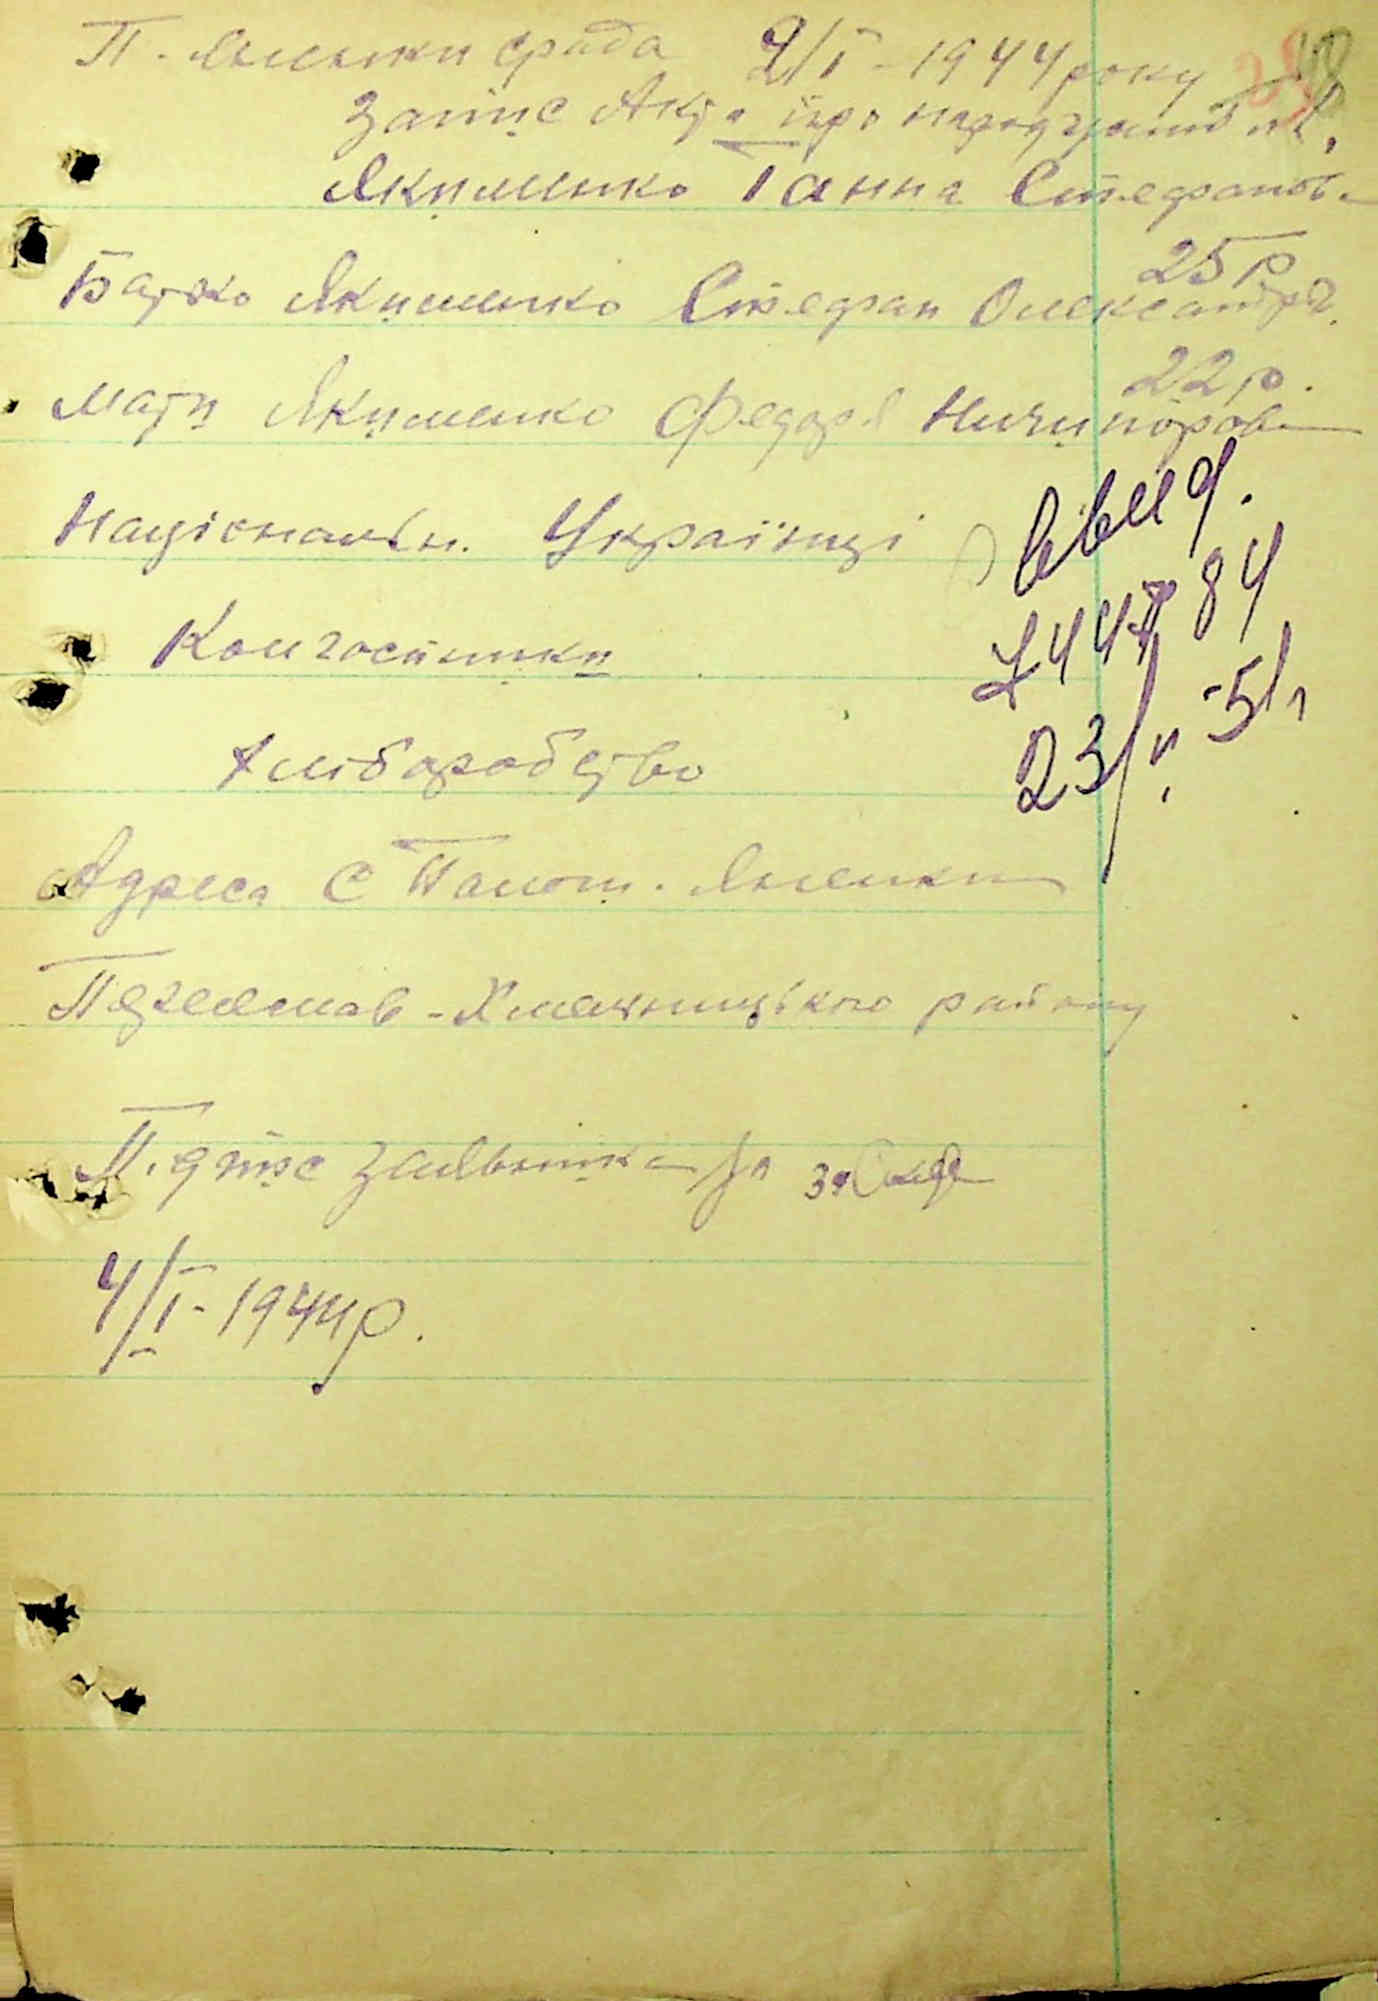 П. Яненки срада 2/I - 1944 року
Запис Акта про народження
Якименко Ганна Стефанов.
25 р
Батько Якименко Стефан Олександр.
22 р.
Мати Якименко Федора Ничипоровна
Національн. Українці
Колгоспники
Хліборобство
Адреса С Палот. Яненки
Переяслав-Хмельницького району
Підпис заявника
4/I - 1944 р.
84
23/VI -51 г